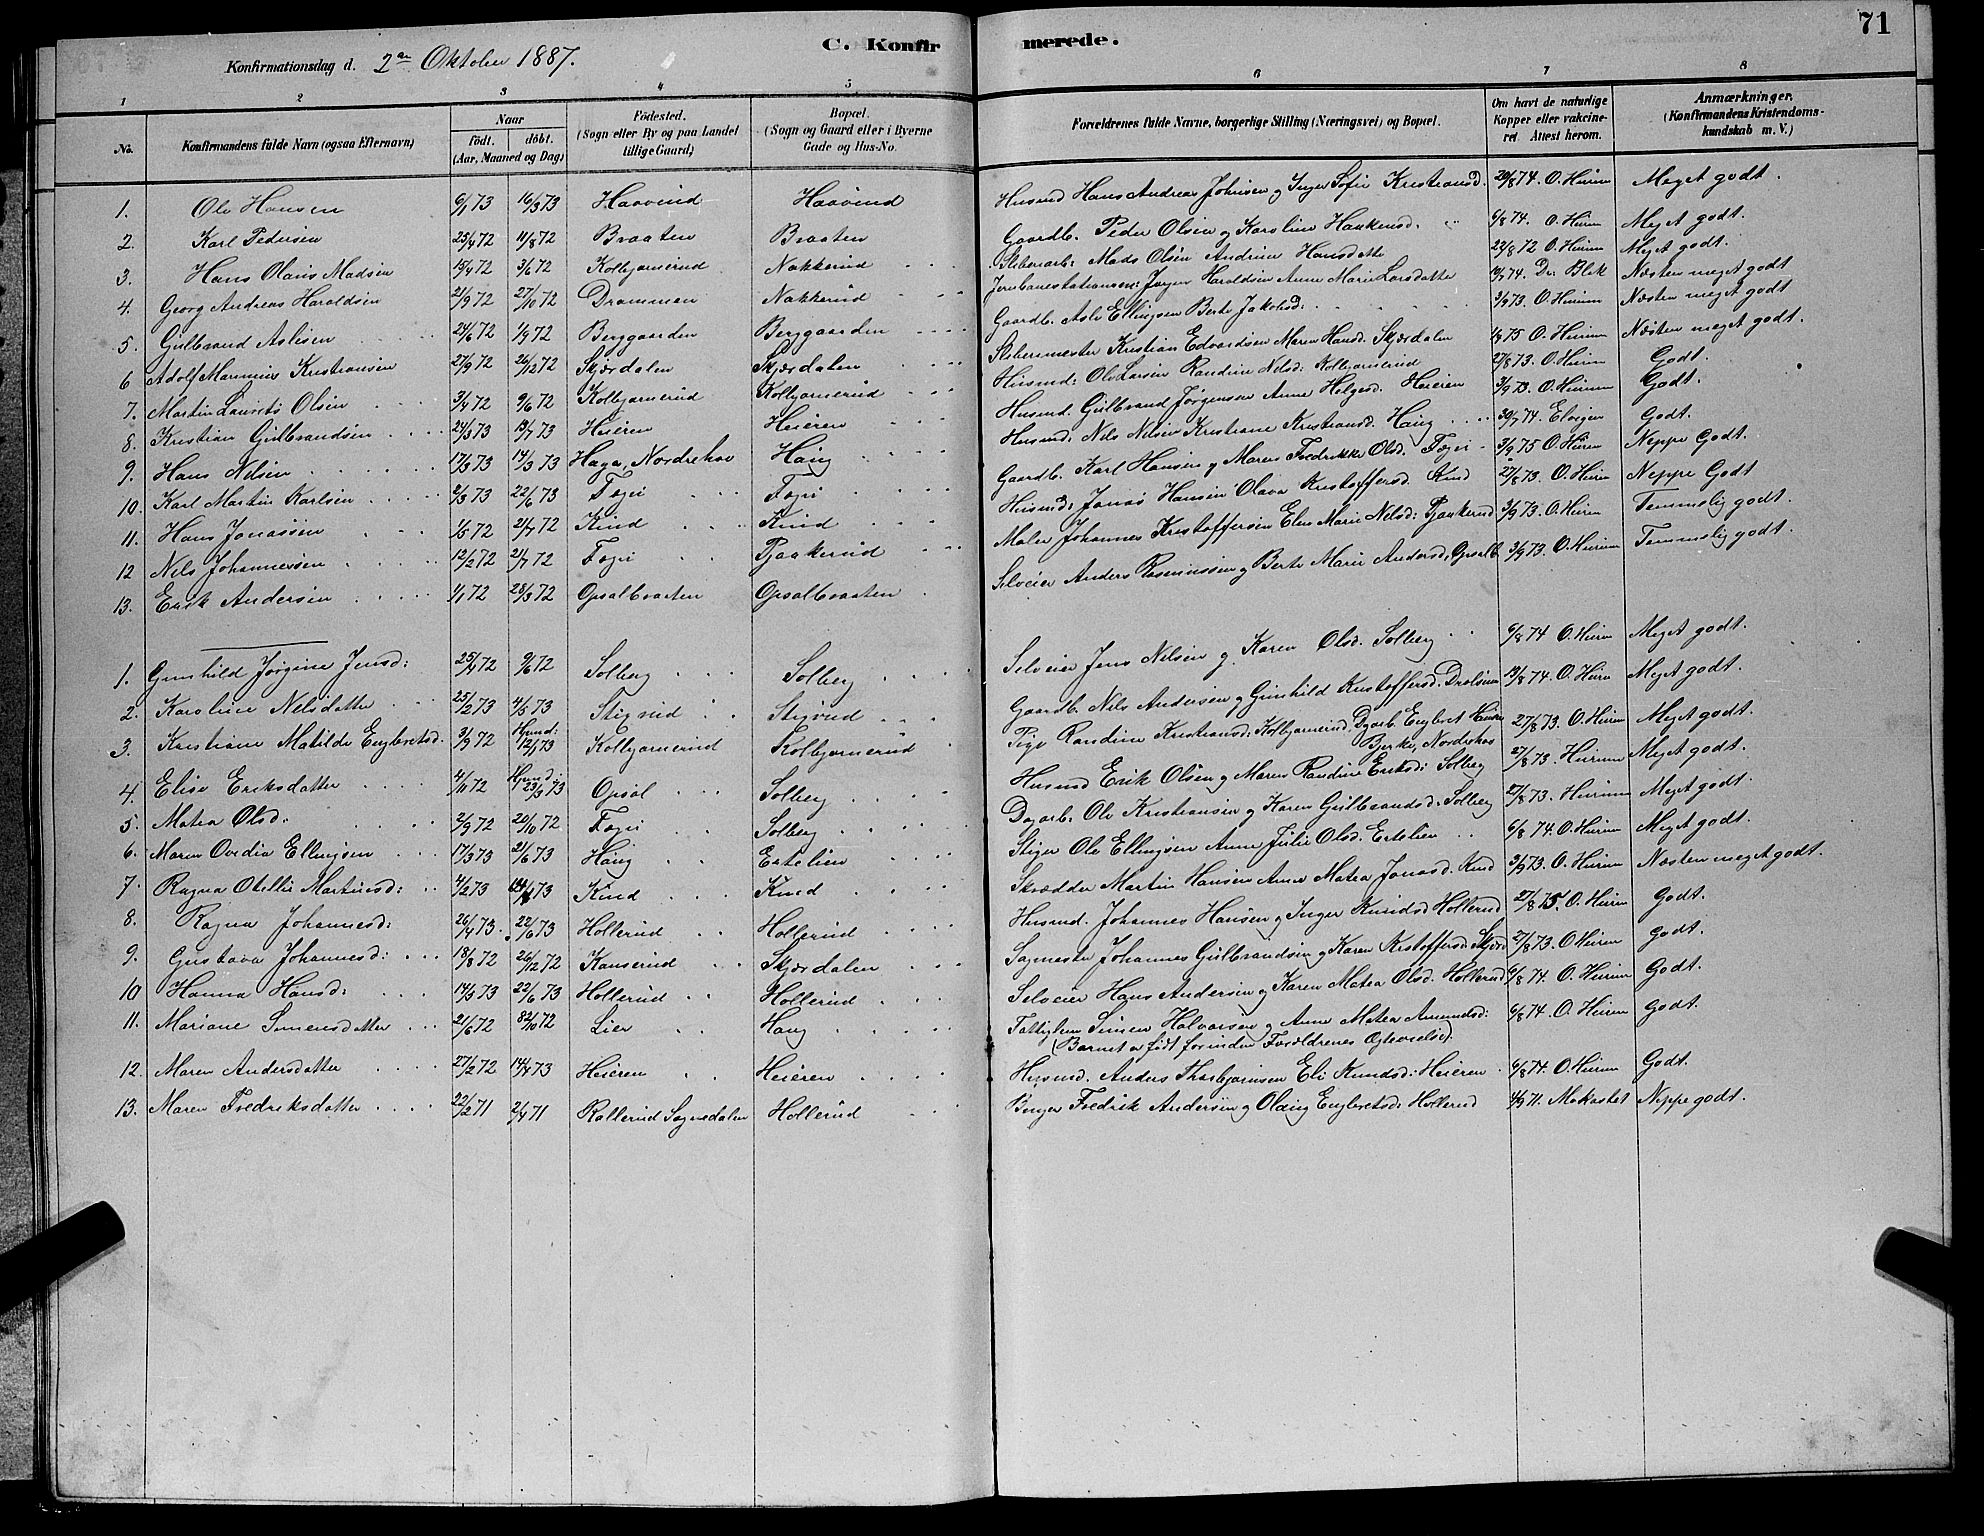 71
C. Konfirmerede.
Konfirmationsdag d. 2den Oktober 1887.
1 2 3 4 5 6 7 8
No. Konfirmandens fulde Navn (ogsaa Efternavn) Naar födt. döbt. (Aar, Maaned og Dag) Födested. (Sogn eller By og paa Landet tillige Gaard) Bopæl. (Sogn og Gaard eller i Byerne Gade og Hus-No. Forældrenes fulde Navne, borgerlige Stilling (Næringsvei) og Bopæl. Om havt de naturlige Kopper eller vakcineret Attest herom. Anmærkninger. (Konfirmandens Kristendomskundskab m. V.)
1. Ole Hansen 6/1 73 16/3 73 Haavind Haavind Husmd Hans Andreas Johnsen og Inger Sofie Kristiansd. 20/8 74. O. Hurum Meget godt.
2. Karl Pedersen 25/4 72 11/8 72 Braaten Braaten Gaardb. Peder Olsen og Karoline Haakensd. 6/8 74. O. Hurum Meget godt.
3. Hans Olaus Madsen 15/4 72 3/6 72 Kolbjørnerud Nakkerud Sliberiarb: Mads Olsen Andrine Hansdatter 22/8 72 O. Hurum Meget godt.
4. Georg Andreas Haroldsen 21/9 72 27/10 72 Drammen Nakkerud Jernbanestationsm: Jørgen Haroldsen Anne Marie Larsdatter 19/7 74. Dr. Blik Næsten meget godt
5. Gulbrand Aslesen 24/6 72 1/9 72 Berggaarden Berggaarden Gaardb. Asle Ellingsen Berte Jakobsd: 3/9 73. O. Hurum Næsten meget godt
6 Adolf Marinius Kristiansen 27/9 72 26/12 72 Skjærdalen Skjærdalen Slibermester Kristian Edvardsen Maren Hansd. Skjærdalen 1/9 75 O. Hurum Næsten meget godt.
7. Martin Laurits Olsen 3/4 72 9/6 72 Kolbjørnerud Kolbjørnerud Husmd: Ole Larsen Randine Nilsd: Kolbjørnerud 27/8 73. O. Hurum Godt.
8. Kristian Gulbrandsen 24/3 73 13/7 73 Heieren Heieren Husmd. Gulbrand Jørgensen Anne Helgesd. Heieren 3/9 73. O. Hurum Godt.
9. Hans Nilsen 17/3 73 14/3 73 Haga, Norderhov Haug Husmd: Nils Nilsen Kristiane Kristiansd. Haug 30/7 74. Godt.
10. Karl Martin Karlsen 2/3 73 22/6 73 Fegri Fegri Gaardb. Karl Hansen og Maren Fredrikke Olsd. Fegri 3/9 75 O. Hurum Neppe Godt.
11. Hans Jonassen 1/5 72 21/7 72 Kind Kind Husmd: Jonas Hansen Olava Kristoffersd. Kind 27/8 73. O. Hurum Neppe Godt
12 Nils Johannesen 12/2 72 21/7 72 Fegri Pjaakerud Maler Johannes Kristoffersen Elen Marie Nilsd: Pjaakerud 3/9 73. O. Hurum Temmelig godt.
13. Erik Andersen 1/1 72 28/3 72 Opsalbraaten Opsalbraaten Selveier Anders Rasmussen og Berte Marie Andersd. Opsalb. 3/9 73. O. Hurum Temmelig godt.
1. Gunhild Jørgine Jensd: 25/4 72 9/6 72 Solberg Solberg Selveier Jens Nilsen og Karen Olsd. Solberg 6/8 74 O. Hurum Meget godt.
2. Karoline Nelsdatter 25/2 73 4/5 73 Stigrud Stigrud Gaardb. Nils Andersen og Gunhild Kristoffersd. Drolsum 13/8 74. O. Hurum Meget godt.
3. Kristiane Matilde Engbretsd. 3/9 72 Hjemd: 12/1 73 Kolbjørnerud Kolbjørnerud Pige Randine Kristiansd: Kolbjørnerud, Dgarb. Engbret Hansen Bjerke, Norderhov 27/8 73. O. Hurum Meget godt.
4. Elise Eriksdatter 4/11 72 Hjemd: 23/3 73 Opsal Solberg Husmd Erik Olsen og Maren Randine Eriksd: Solberg 27/8 73 Hurum Meget godt.
5. Matea Olsd: 2/9 72 20/10 72 Fegri Solberg Dgarb. Ole Kristiansen og Karen Gulbrandsd: Solberg 27/8 73. Hurum Meget godt.
6. Maren Ovedia Ellingsen 17/3 73 21/6 73 Haug Ertelien Stiger Ole Ellingsen Anne Julie Olsd. Ertelien 6/8 74. O. Hurum Meget godt.
7. Ragna Otellie Martinsd: 4/2 73 14/4 73 Kind Kind Skrædder Martin Hansen Anne Matea Jonasd. Kind 3/9 73. O. Hurum Næsten meget godt.
8. Ragna Johannesd: 26/4 73. 22/6 73 Hollerud Hollerud Husmd. Johannes Hansen og Inger Knudsd Hollerud 27/8 75. O. Hurum Godt.
9. Gustava Johannesd: 18/8 72 26/12 72 Kanserud Skjærdalen Sagmester Johannes Gulbrandsen og Karen Kristoffersd. Skjærd 27/8 73. O Hurum Godt.
10 Hanna Hansd: 14/3 73 22/6 73 Hollerud Hollerud Selveier Hans Andersen og Karen Matea Olsd. Hollerud 6/8 74. O. Hurum Godt.
11. Mariane Simensdatter 21/6 72 /10 72 Lier Haug Fattiglem Simen Halvorsen og Anne Matea Amundsd: 6/8 74. O. Hurum Godt.
(Barnet er født forinden Forældrenes Ægtevielse)
12. Maren Andersdatter 27/2 72 14/4 73 Heieren Heieren Husmd. Anders Thorbjørnsen Eli Knudsd: Heieren 6/8 74. O. Hurum Godt.
13. Maren Fredriksdatter 22/2 71 2/4 71 Rallerud Sognedalen Hollerud Fredrik Andersen og Olaug Engbretsd: Hollerud 4/9 71. Mokastet Neppe godt.